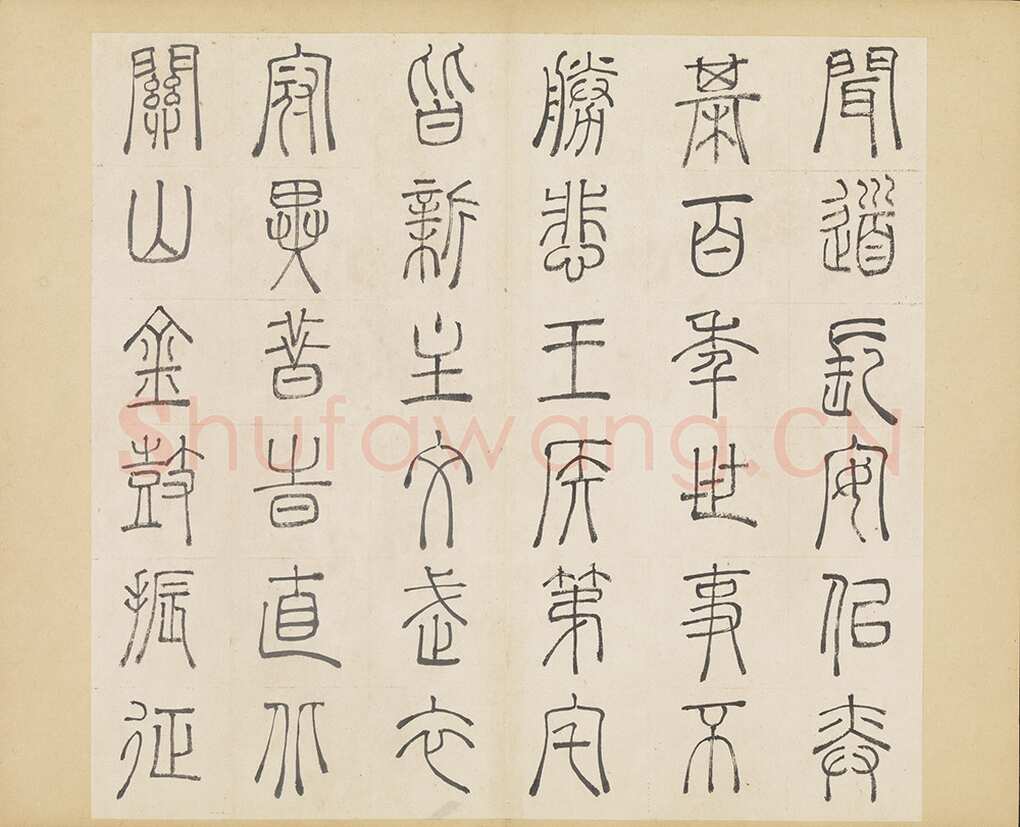 聞道長安佀弈
棊百年世事不
勝悲王侯第宅
皆新主文武衣
冠異昔旹直北
關山金鼓振征
Shufawang.CN